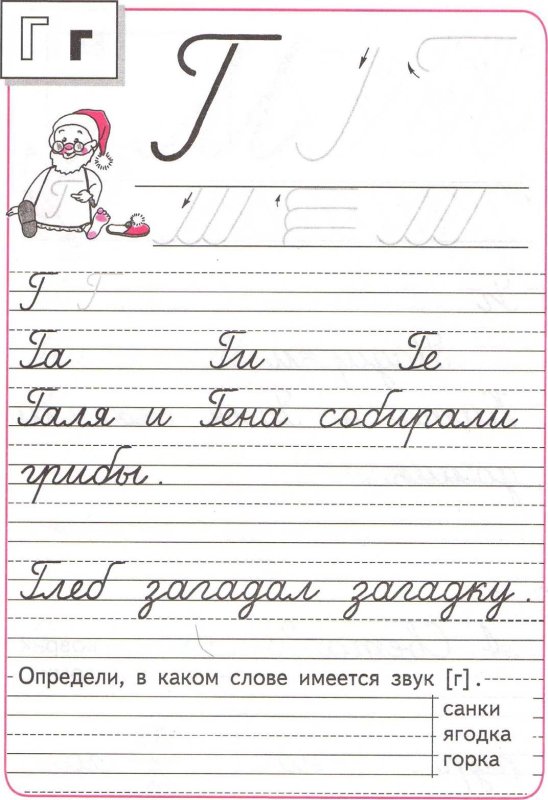 Г г
Г
Г
Г Г
Га Ги Ге
Галя и Гена собирали
грибы.
Глеб загадал загадку.
Определи, в каком слове имеется звук [г].
санки
ягодка
горка